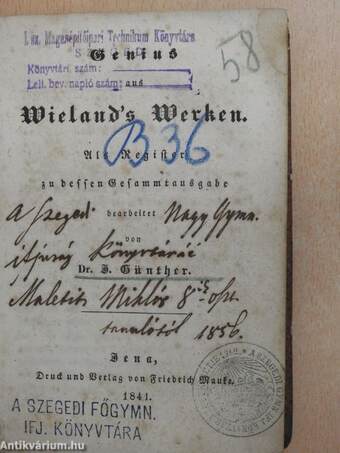 I. sz. Magasépítőipari Technikum Könyvtára
58
Genius
Könyvtári szám:
aus
Lelt. bev. napló szám:
Wieland's Werken.
B36
Als Register
zu dessen Gesammtausgabe
A szegedi bearbeitet Nagy Gymn.
von
ifjuság Könyvtáráé
Dr. F. Günther.
Maletits Miklós 8ik oszt.
tanulótól 1856.
Jena,
Druck und Verlag von Friedrich Mauke.
1841.
A SZEGEDI FŐGYMN.
IFJ. KÖNYVTÁRA
Antikvárium.hu